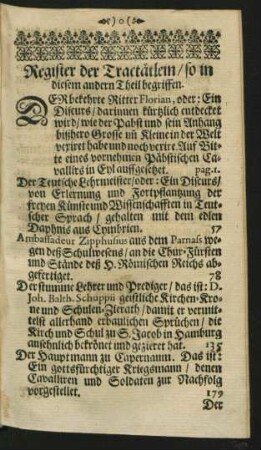 )o(
Register der Tractätlein/so in
diesem andern Theil begriffen.
DERbekehrte Ritter Florian, oder: Ein
Discurs/ darinnen kürtzlich entdecket
wird/ wie der Pabst und sein Anhang
bißhero Grosse uñ Kleine in der Welt
verirret habe und noch verire. Auf Bit-
te eines vornehmen Päbstischen Ca-
vallirs in Eyl auffgesetzet. pag. 1.
Der Teutsche Lehrmeister/oder: Ein Discurs/
von Erlernung und Fortpflantzung der
freyen Künste und Wissenschafften in Teut-
scher Sprach/ gehalten mit dem edlen
Daphnis aus Cymbrien. 57
Ambassadeur Zipphusius aus dem Parnass we-
gen deß Schulwesens/ an die Chur-Fürsten
und Stände deß H. Römischen Reichs ab-
gefertiget. 78
Der stumme Lehrer und Prediger/ das ist: D.
Joh. Balth. Schuppii geistliche Kirchen-Kro-
ne und Schulen-Zierath/ damit er vermit-
telst allerhand erbaulichen Sprüchen/ die
Kirch und Schul zu S. Jacob in Hamburg
ansehnlich bekrönet und gezieret hat. 135
Der Hauptmann zu Capernaum. Das ist:
Ein gottsfürchtiger Kriegsmann/ denen
Cavalliren und Soldaten zur Nachfolg
vorgestellet. 179
Der